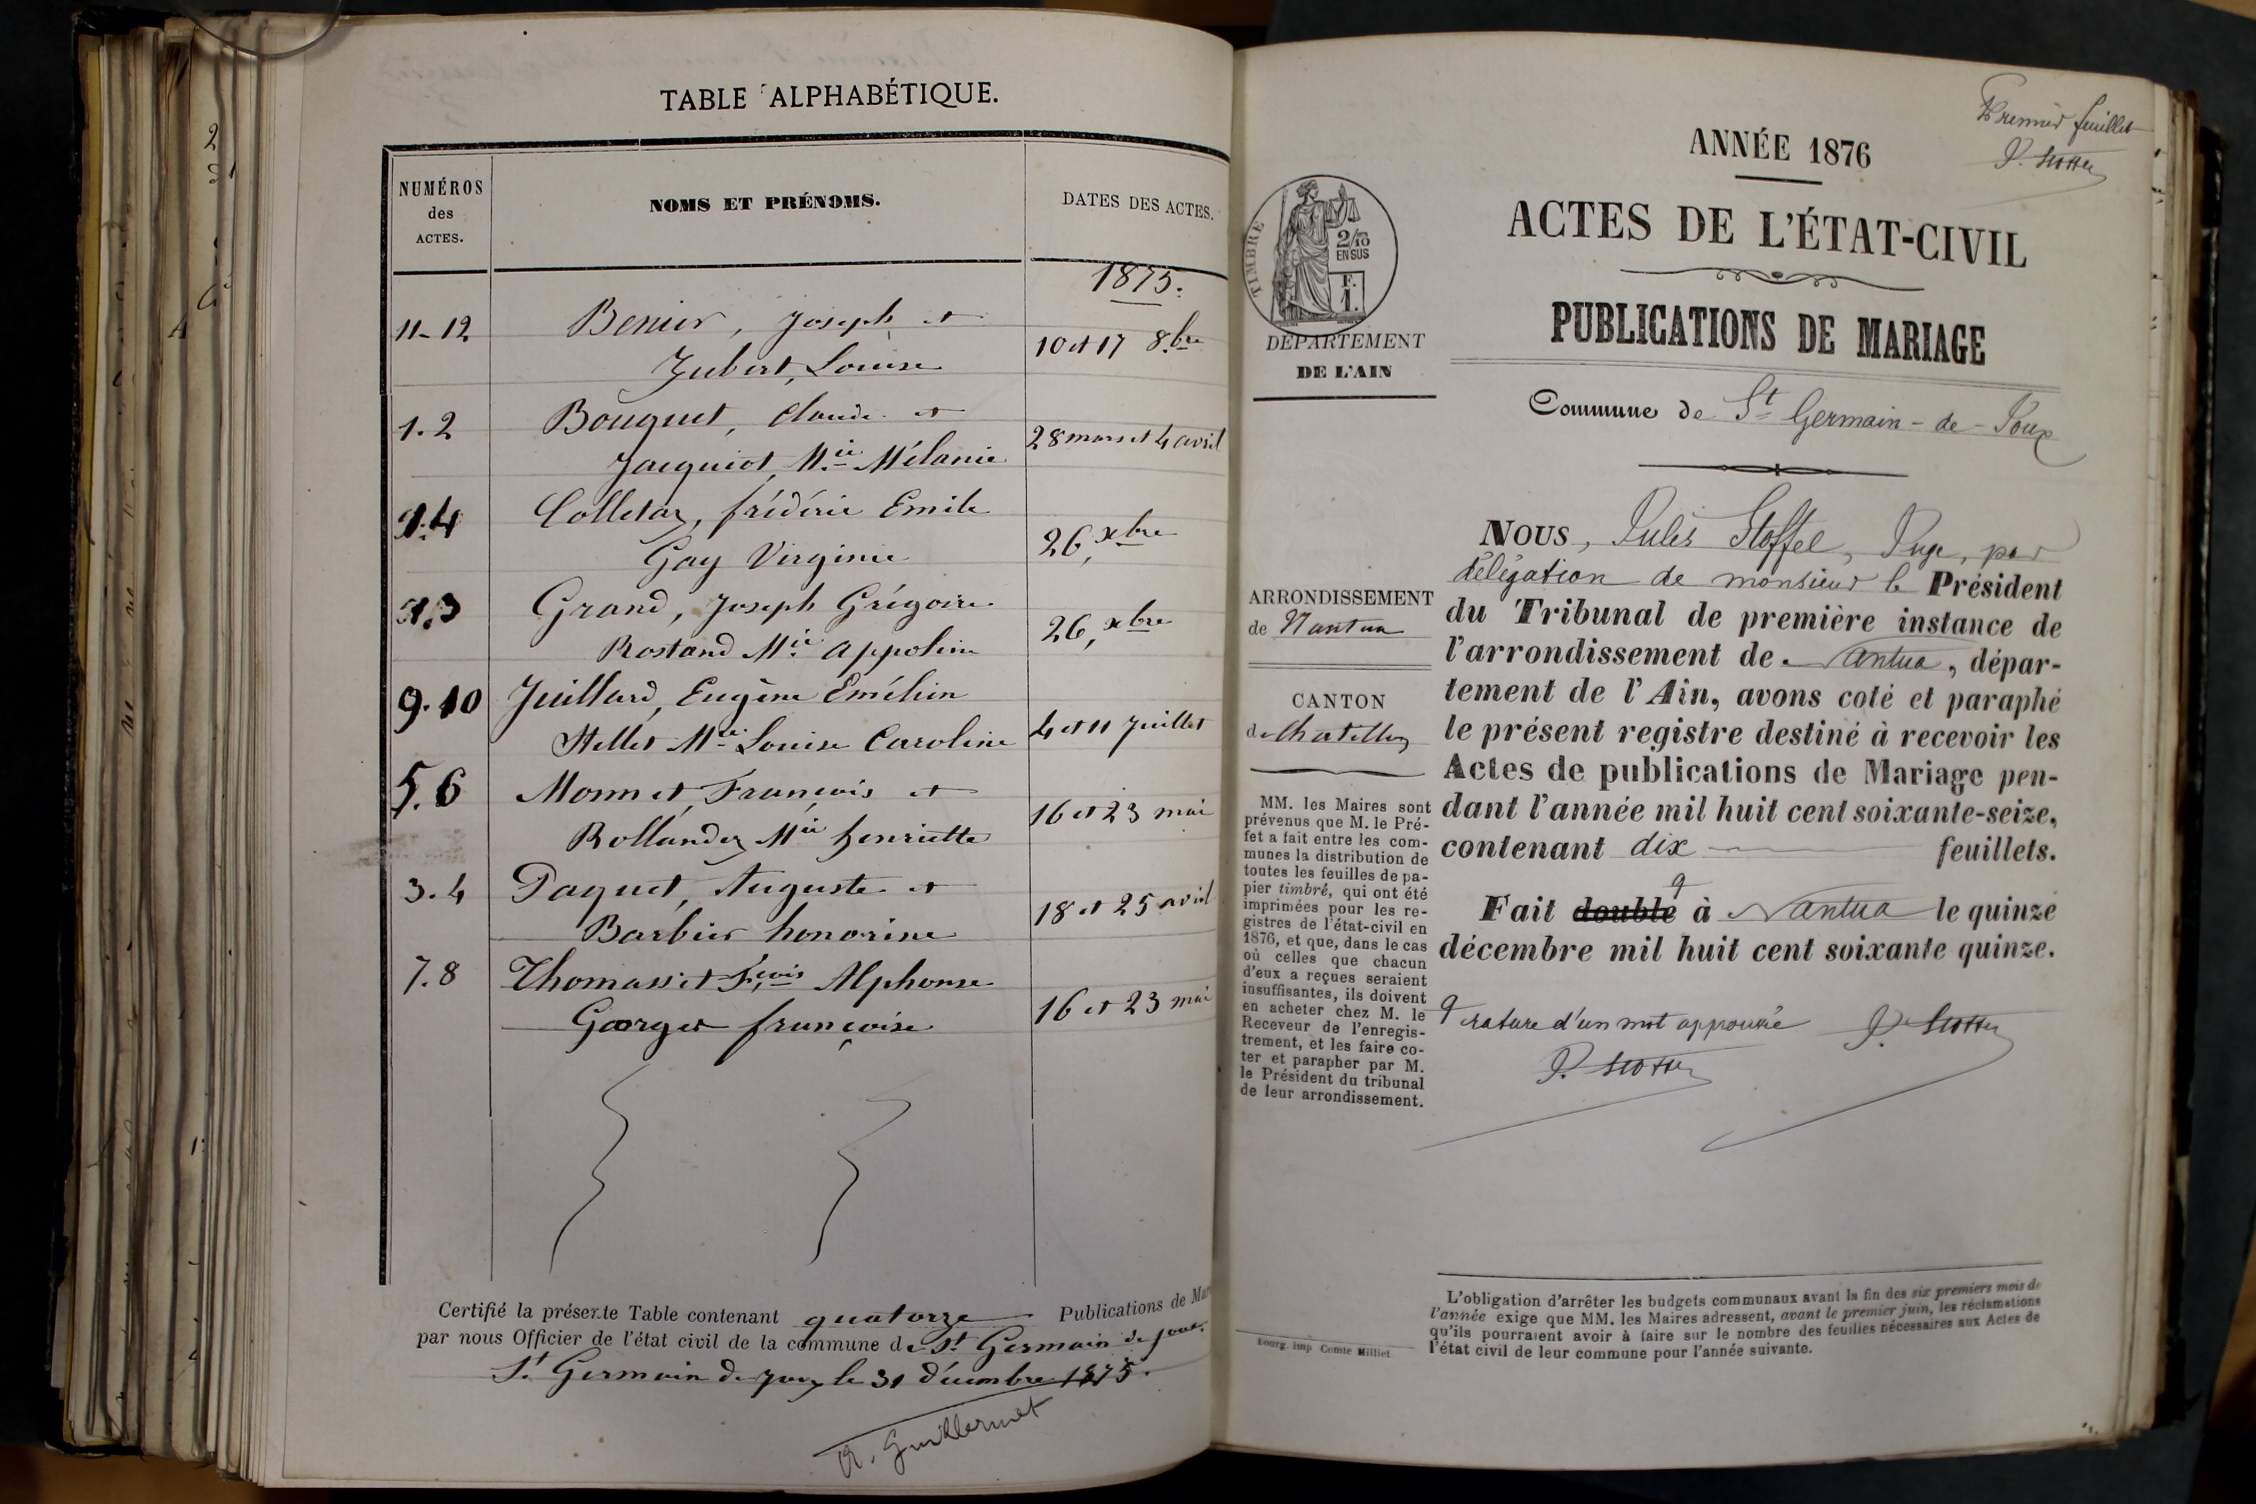 TABLE ALPHABÉTIQUE.
NUMÉROS
des
ACTES.
NOMS ET PRÉNOMS.
DATES DES ACTES.
1875.
11-12 Benier, Joseph et
Jubert, Louise 10 et 17 8bre
1.2 Bouquet, Claude et
Jacquiot, Mie Mélanie 28 mars et 4 avril
Colletaz, frédéric Emile
Gay Virginie 26, xbre
Grand, Joseph Grégoire
Rostand Mie Appoline 26, xbre
9.10 Juillard, Eugène Emélien
Mie Louise Caroline 4 et 11 Juillet
5.6 Monnet, François et
Rollandez Mie henriette 16 et 23 mai
3.4 Paquet, Auguste et
Barbier honorine 18 et 25 avril
7.8 Thomasset Fçois Alphonse
Georget françoise 16 et 23 mai
Certifié la présente Table contenant quatorze Publications de Mar
par nous Officier de l'état civil de la commune de St Germain de Joux.
St Germain de Joux le 31 décembre 1875.
A. Guillermet
Premier feuillet
ANNÉE 1876
ACTES DE L'ÉTAT-CIVIL
PUBLICATIONS DE MARIAGE
Commune de St Germain-de-Joux
TIMBRE
2/10
EN SUS
F.
1.
DÉPARTEMENT
DE L'AIN
ARRONDISSEMENT
de Nantua
CANTON
de Chatillon
MM. les Maires sont
prévenus que M. le Pré-
fet a fait entre les com-
munes la distribution de
toutes les feuilles de pa-
pier timbré, qui ont été
imprimées pour les re-
gistres de l'état-civil en
1876, et que, dans le cas
où celles que chacun
d'eux a reçues seraient
insuffisantes, ils doivent
en acheter chez M. le
Receveur de l'enregis-
trement, et les faire co-
ter et parapher par M.
le Président du tribunal
de leur arrondissement.
Bourg, imp Comte Milliet
NOUS, Jules Stoffel, Juge, par
délégation de monsieur le Président
du Tribunal de première instance de
l'arrondissement de Nantua, dépar-
tement de l'Ain, avons coté et paraphé
le présent registre destiné à recevoir les
Actes de publications de Mariage pen-
dant l'année mil huit cent soixante-seize,
contenant dix feuillets.
Fait double à Nantua le quinze
décembre mil huit cent soixante quinze.
rature d'un mot approuvée
L'obligation d'arrêter les budgets communaux avant la fin des six premiers mois de
l'année exige que MM. les Maires adressent, avant le premier juin, les réclamations
qu'ils pourraient avoir à faire sur le nombre des feuilles nécessaires aux Actes de
l'état civil de leur commune pour l'année suivante.